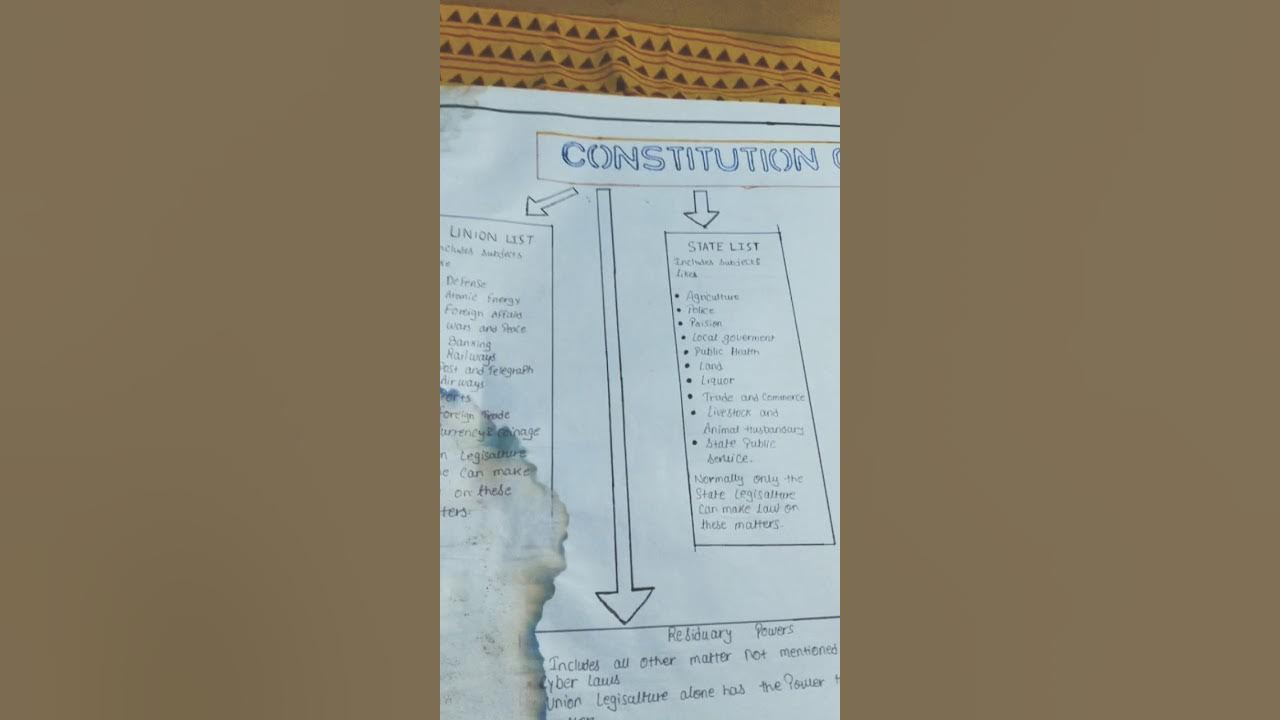 CONSTITUTION
UNION LIST
ncludes subjects
ke
Defense
Atomic Energy
Foreign Affairs
Wars and Peace
Banking
Railways
Post and Telegraph
Airways
Ports
Foreign Trade
urrency & coinage
n Legisalture
e can make
on these
ters.
STATE LIST
Includes subjects
likes
• Agriculture
• Police
• Paision
• Local goverment
• Public Health
• Land
• Liquor
• Trade and Commerce
• Livestock and
Animal Husbandary
• State Public
service.
Normally only the
State Legisalture
Can make Law on
these matters.
Residuary Powers
Includes all other matter not mentioned
yber Laws
Union Legisalture alone has the Power